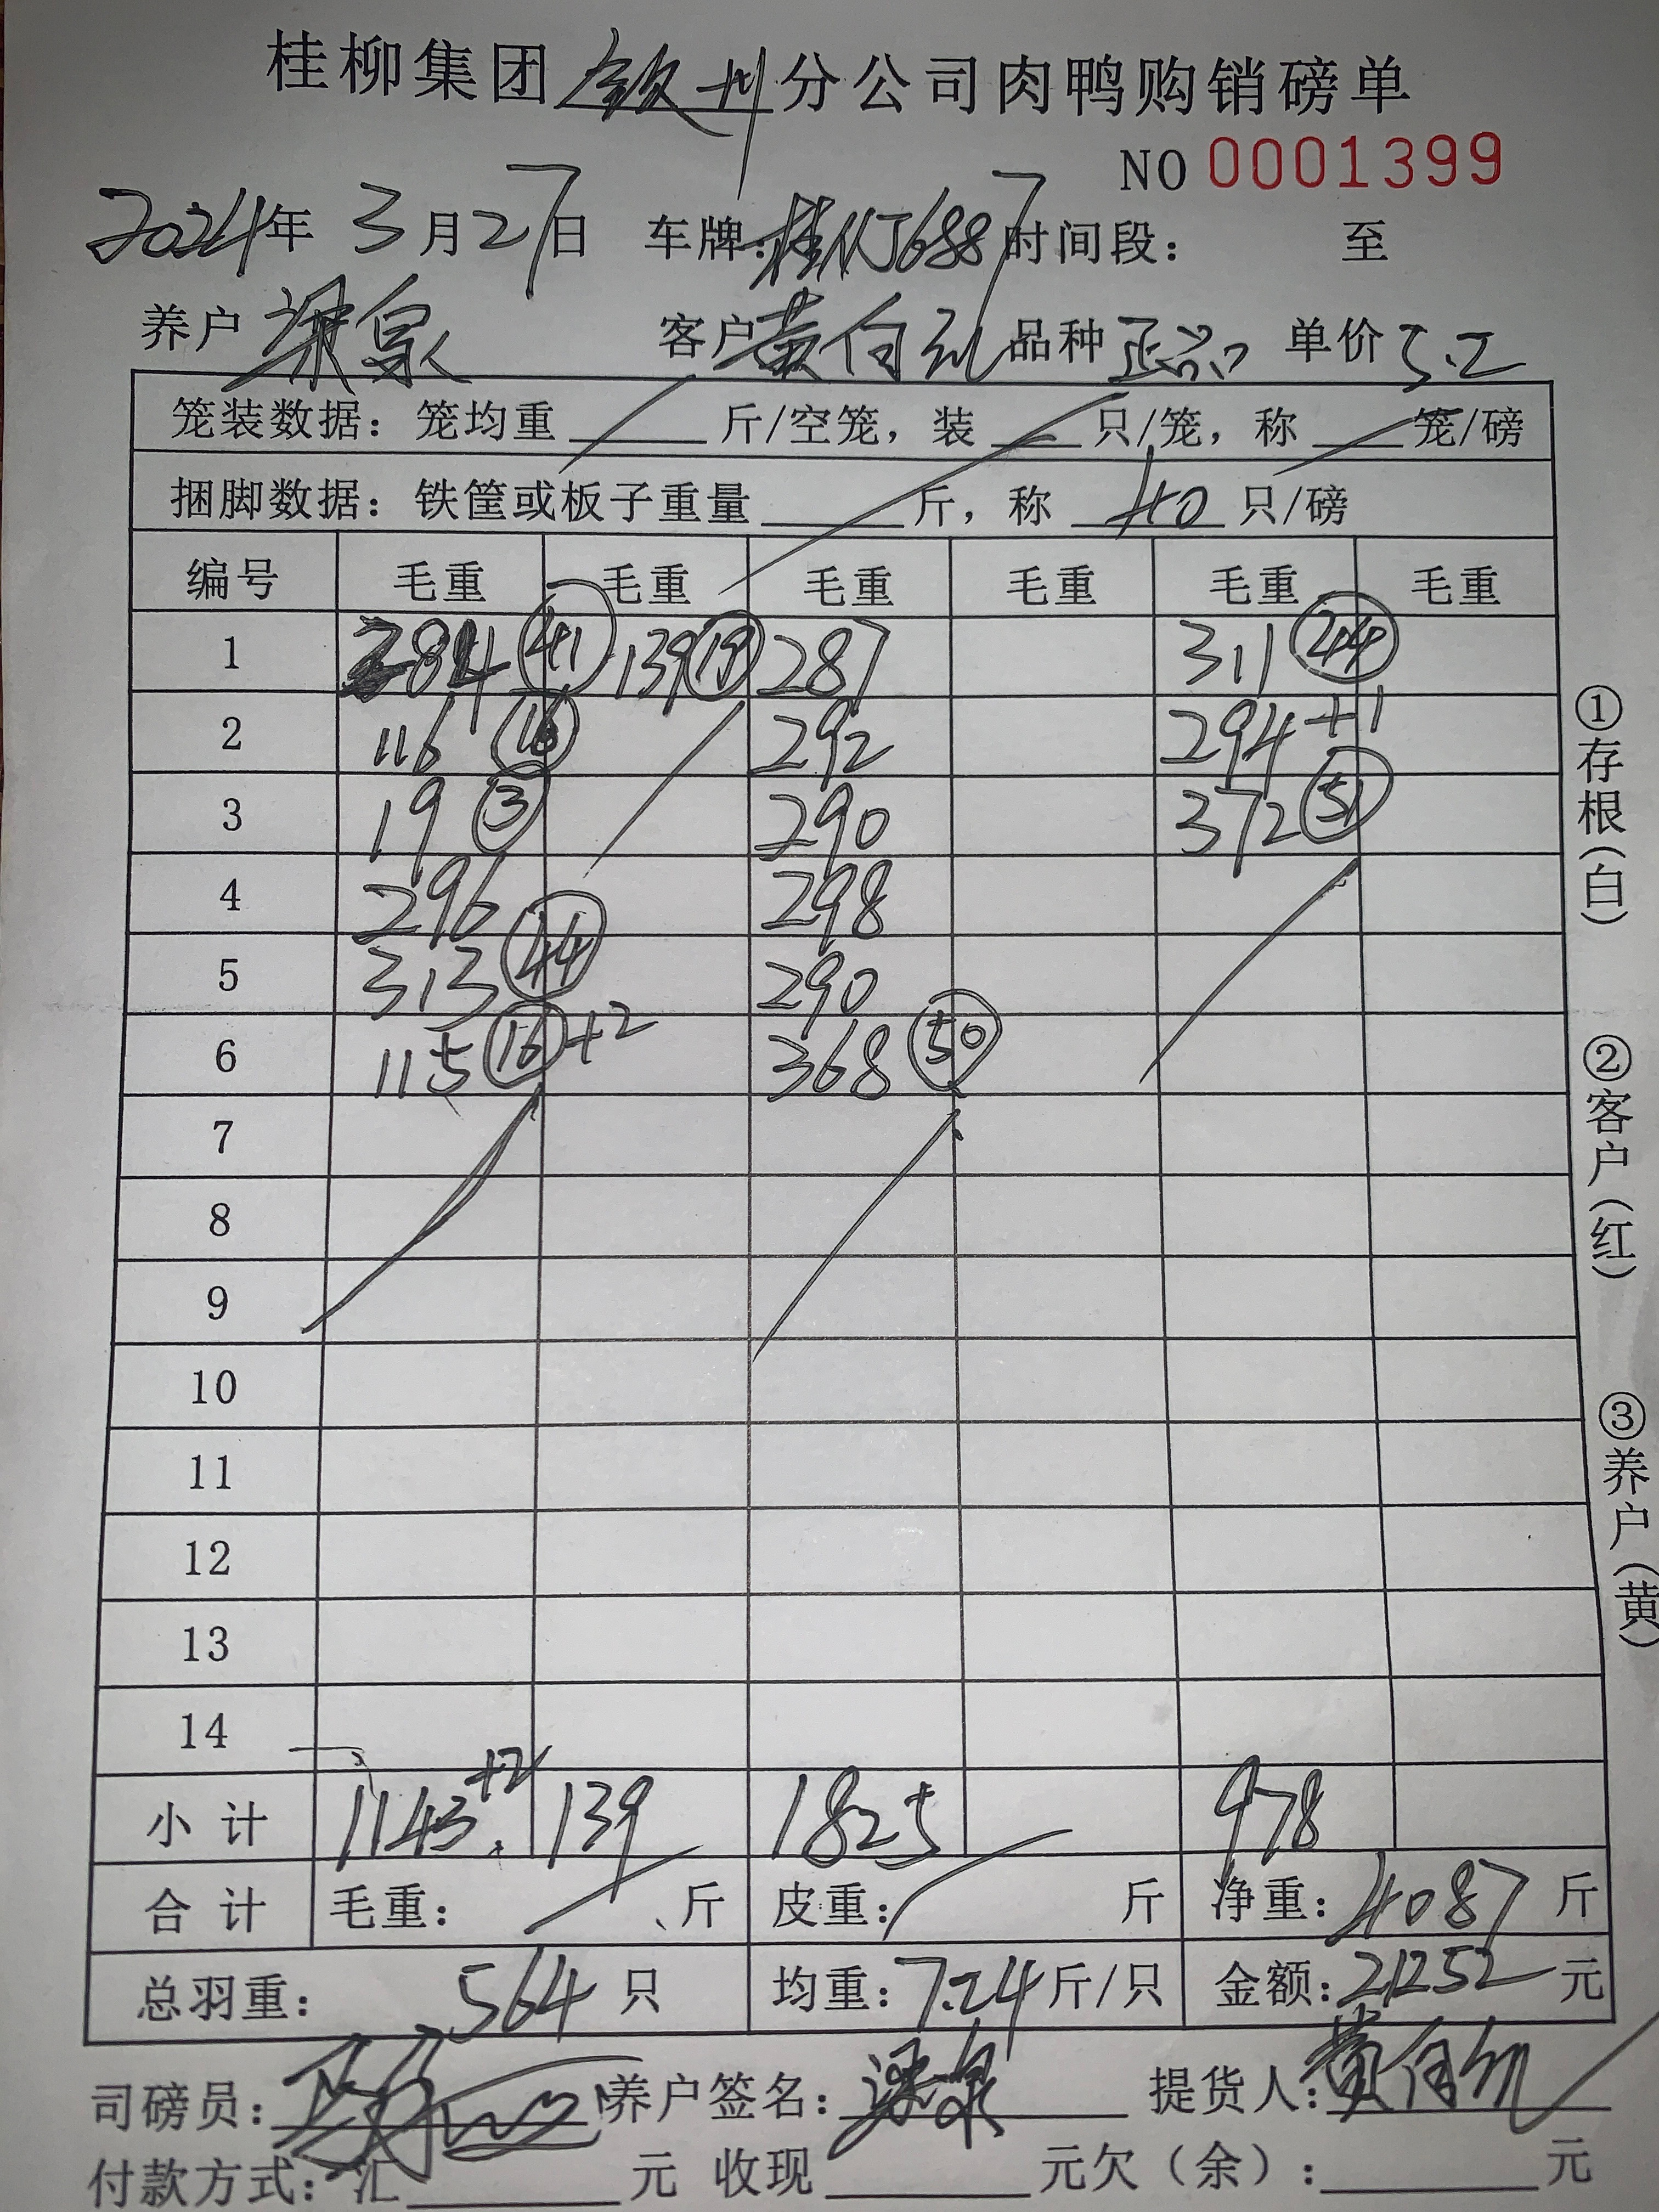 桂柳集团钦州分公司肉鸭购销磅单
NO 0001399
2024年3月27日 车牌:桂 J6887 时间段: 至
养户 梁泉 客户 黄 品种 正品 单价 5.2
笼装数据:笼均重____斤/空笼,装___只/笼,称___笼/磅
捆脚数据:铁筐或板子重量____斤,称 40 只/磅
编号 毛重 毛重 毛重 毛重 毛重 毛重
1 284 (41) 139 (19) 287 311 (44)
2 116 (16) 292 294+1
3 19 (3) 290 372 (51)
4 296 298
5 313 (44) 290
6 115 (16)+2 368 (50)
7
8
9
10
11
12
13
14
小计 1143+2 139 1825 978
合计 毛重: 斤 皮重: 斤 净重: 4087 斤
总羽重: 564 只 均重:7.24斤/只 金额:21252元
司磅员: 养户签名:梁泉 提货人:黄
付款方式:汇____元 收现____元欠(余):____元
①存根(白)
②客户(红)
③养户(黄)